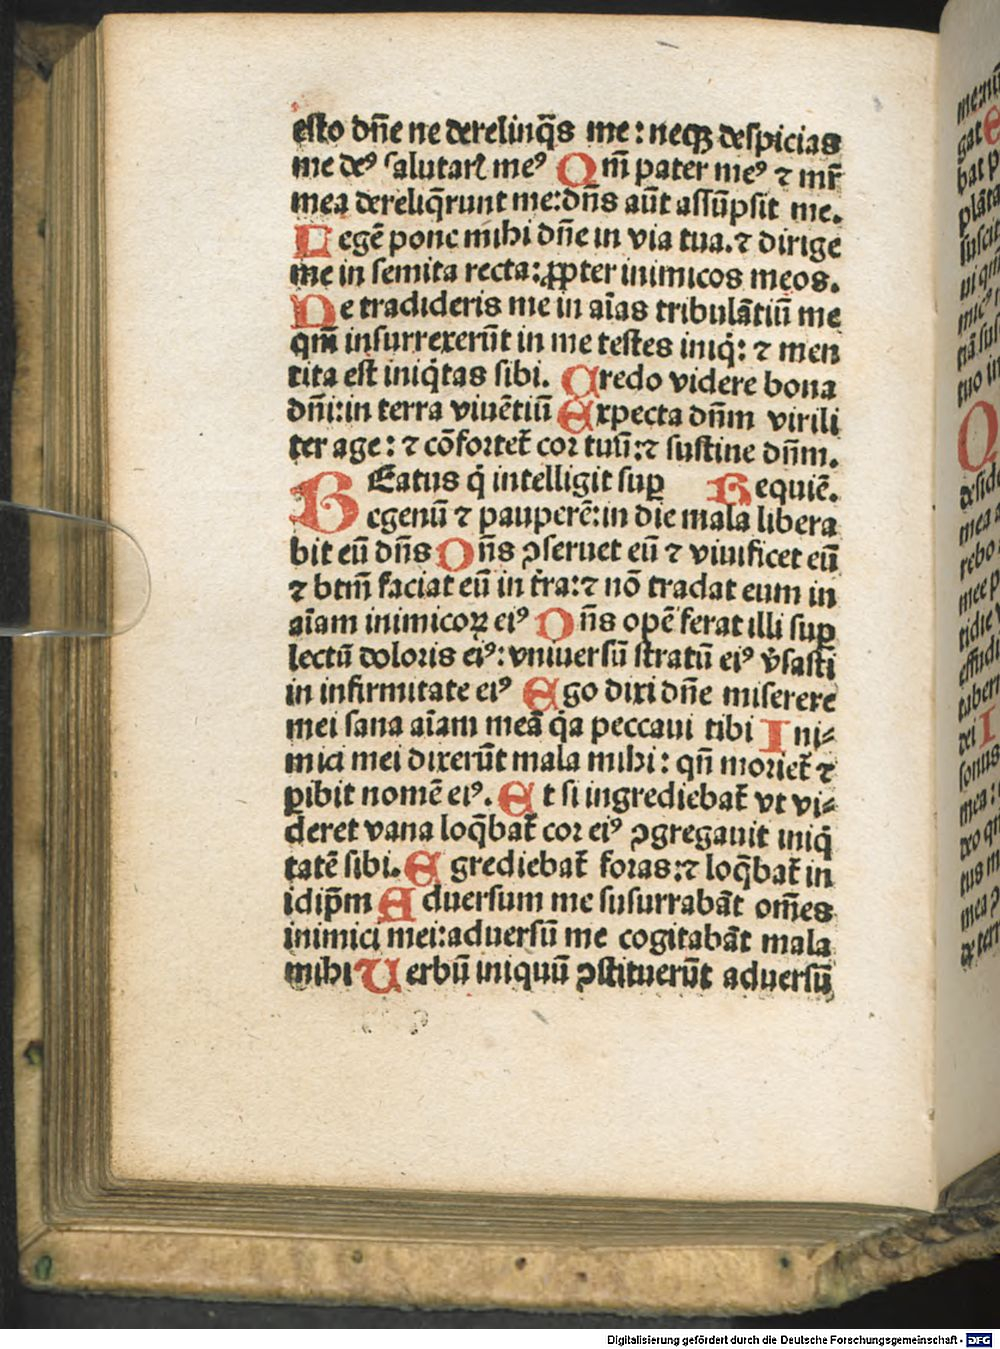 esto dñe ne derelinq̃s me: neqꝫ despicias
me deꝰ salutarꝭ meꝰ Qm̄ pater meꝰ ⁊ mr̄
mea dereliq̃runt me:dñs aūt assūpsit me.
Legē pone mihi dñe in via tua.⁊ dirige
me in semita recta:ꝓpter inimicos meos.
Ne tradideris me in aīas tribulātiū me
qm̄ insurrexerūt in me testes iniq̇: ⁊ men
tita est iniq̇tas sibi. Credo videre bona
dñi:in terra viuētiū Expecta dñm virili
ter age: ⁊ cōfortet᷑ cor tuū:⁊ sustine dñm.
BEatus q̇ intelligit suꝑ Requiē.
egenū ⁊ pauperē:in die mala libera
bit eū dñs Dñs ꝯseruet eū ⁊ viuificet eū
⁊ btm̄ faciat eū in t̉ra:⁊ nō tradat eum in
aīam inimicoꝝ eiꝰ Dñs opē ferat illi suꝑ
lectū doloris eiꝰ:vniuersū stratū eiꝰ v̉sasti
in infirmitate eiꝰ Ego dixi dñe miserere
mei sana aīam meā q̇a peccaui tibi Ini⸗
mici mei dixerūt mala mihi: qñ moriet᷑ ⁊
ꝑibit nomē eiꝰ. Et si ingrediebat᷑ vt vi⸗
deret vana loq̄bat᷑ cor eiꝰ ꝯgregauit iniq̇
tatē sibi. Egrediebat᷑ foras:⁊ loq̄bat᷑ in
idip̄m Aduersum me susurrabāt om̄es
inimici mei:aduersū me cogitabāt mala
mihi Uerbū iniquū ꝯstituerūt aduersū
Digitalisierung gefördert durch die Deutsche Forschungsgemeinschaft - DFG